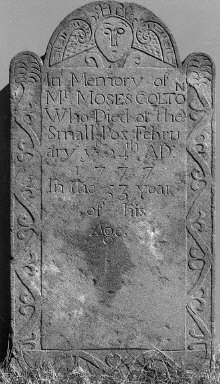 In Memory of
Mr MOSES COLTON
Who Died of the
Small Pox Febru
ary ye 24th AD:
1777
In the 53 year
of his
Age